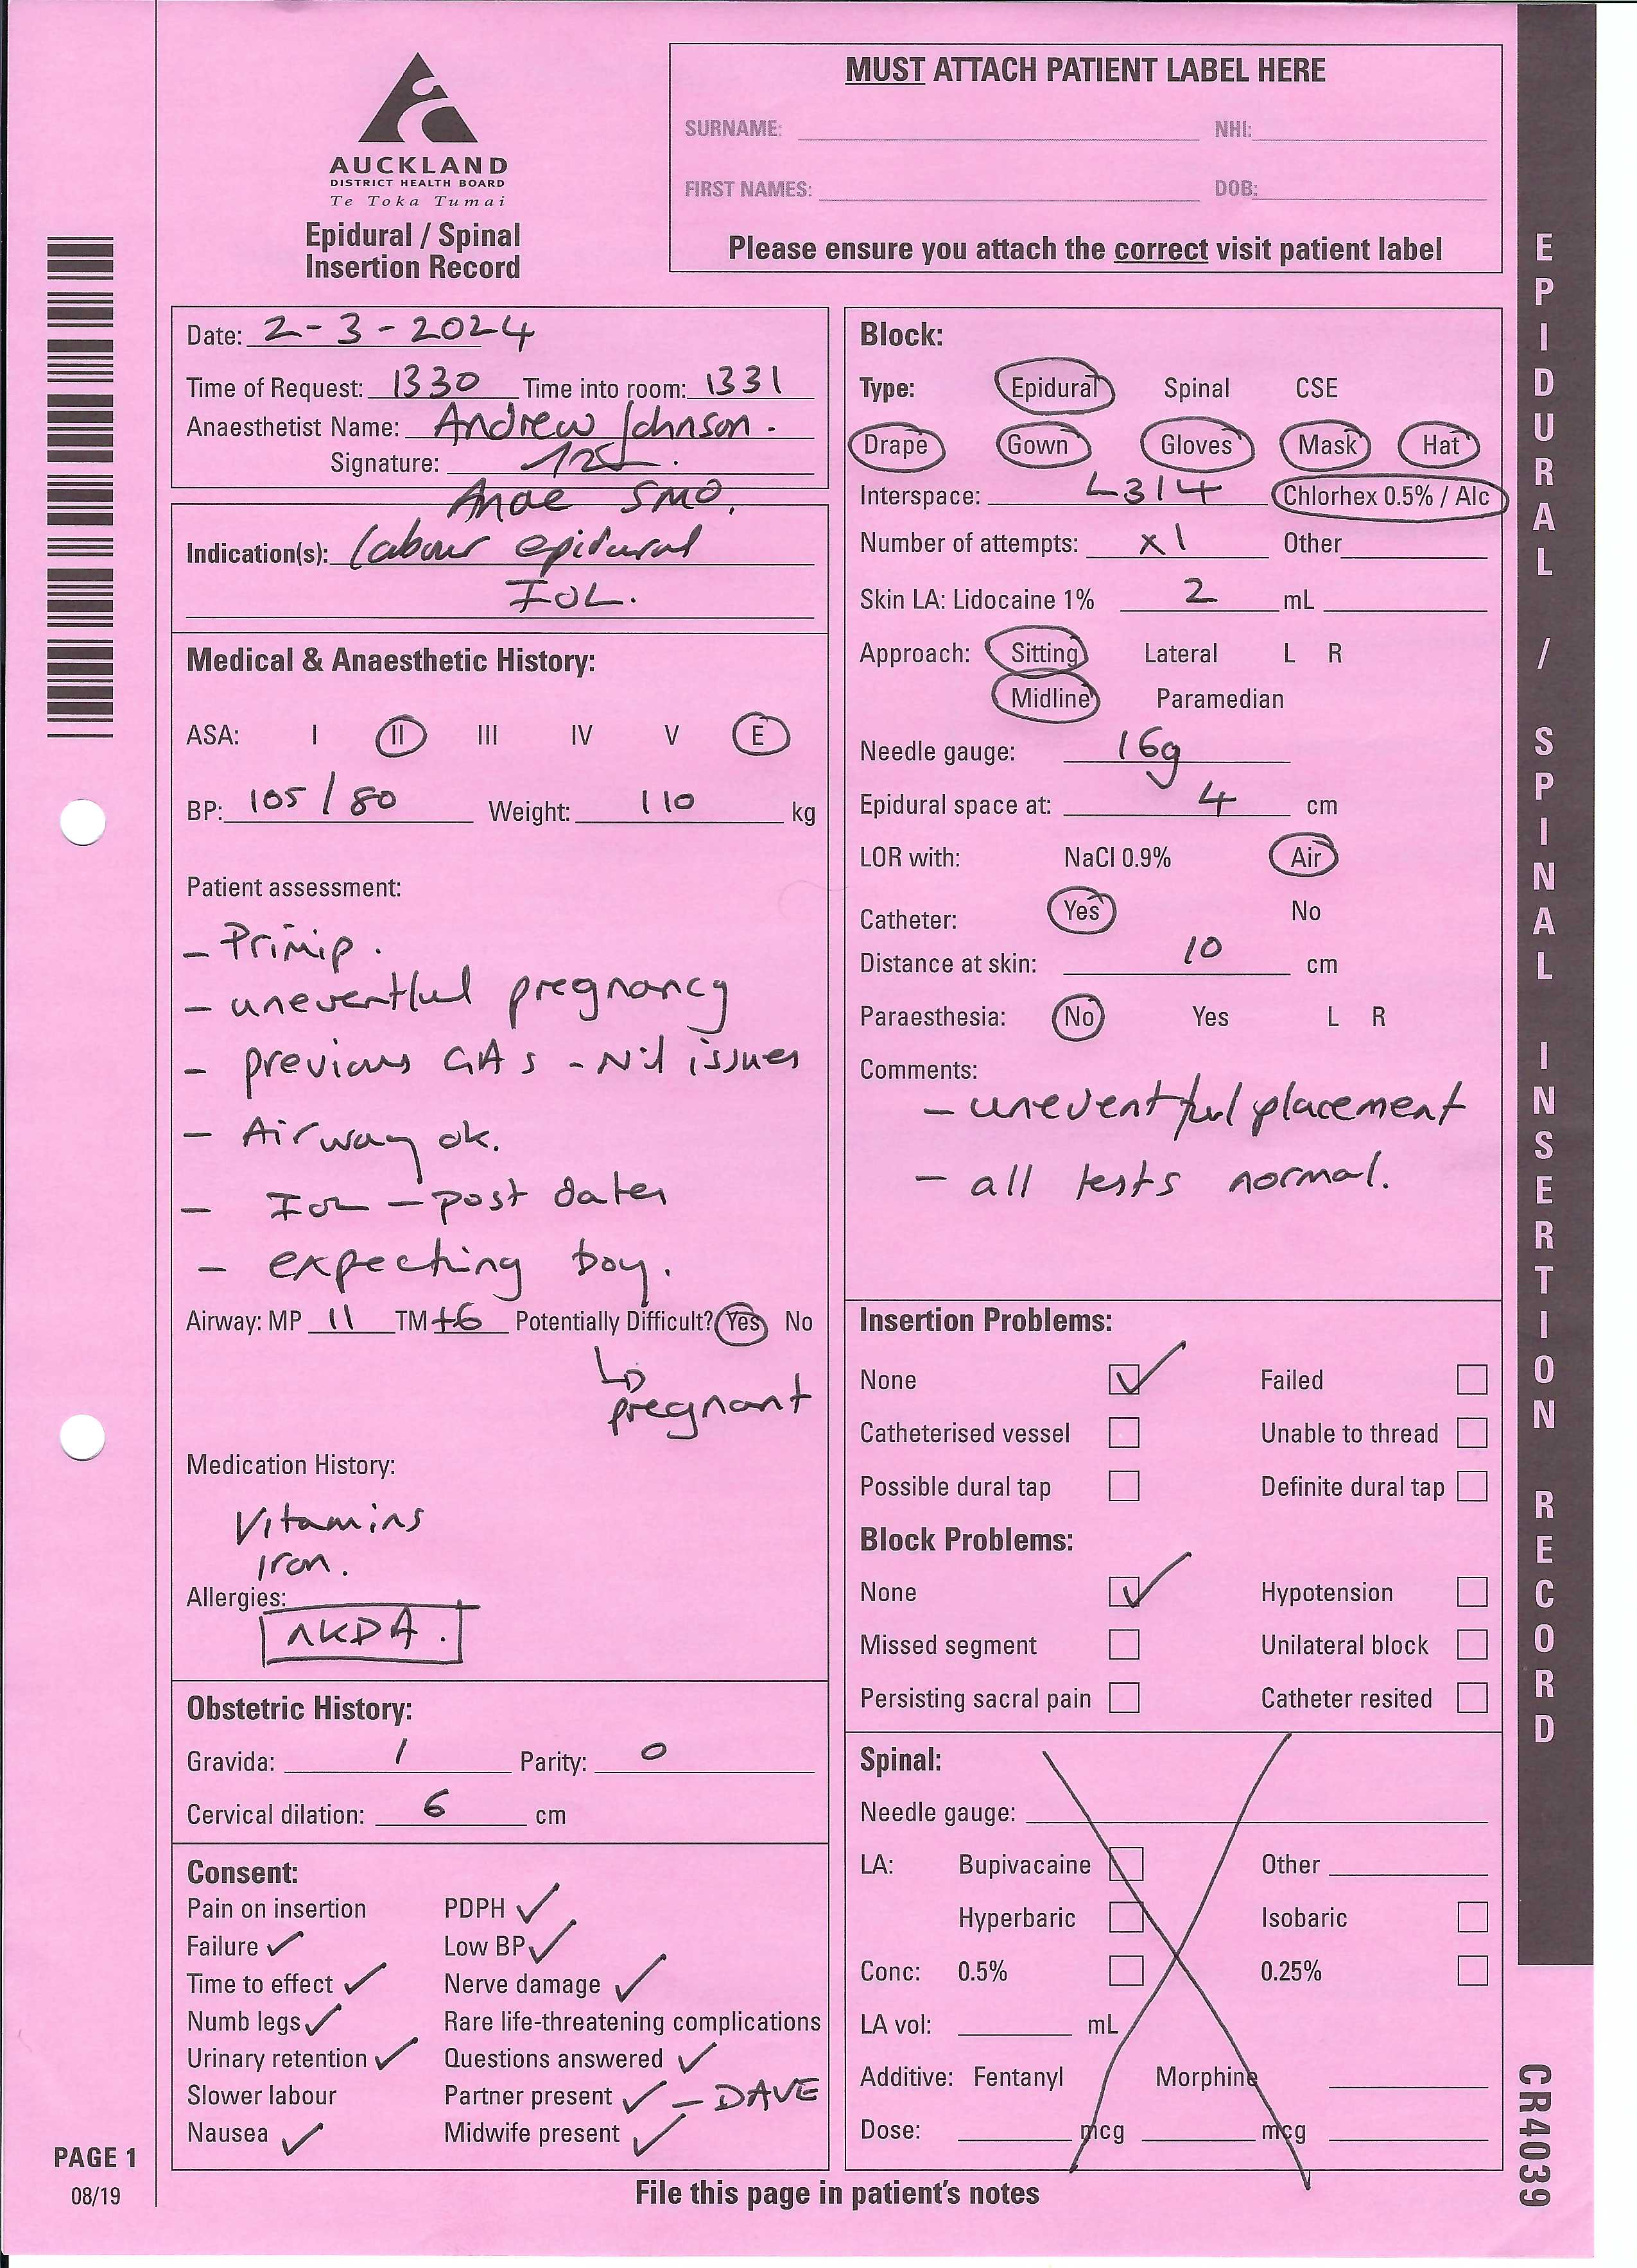 MUST ATTACH PATIENT LABEL HERE
SURNAME: NHI:
FIRST NAMES: DOB:
Please ensure you attach the correct visit patient label
AUCKLAND
DISTRICT HEALTH BOARD
Te Toka Tumai
Epidural / Spinal
Insertion Record
Date: 2-3-2024
Time of Request: 1330 Time into room: 1331
Anaesthetist Name: Andrew Johnson.
Signature:
Anae SMO.
Indication(s): labour epidural
IOL.
Medical & Anaesthetic History:
ASA: I II III IV V E
BP: 105/80 Weight: 110 kg
Patient assessment:
- Primip.
- uneventful pregnancy
- previous GAs - Nil issues
- Airway ok.
- IOL - post dates
- expecting boy.
Airway: MP II TM +6 Potentially Difficult? Yes No
pregnant
Medication History:
Vitamins
Iron.
Allergies:
NKDA.
Obstetric History:
Gravida: 1 Parity: 0
Cervical dilation: 6 cm
Consent:
Pain on insertion PDPH ✓
Failure ✓ Low BP ✓
Time to effect ✓ Nerve damage ✓
Numb legs ✓ Rare life-threatening complications
Urinary retention ✓ Questions answered ✓
Slower labour Partner present ✓ - DAVE
Nausea ✓ Midwife present ✓
Block:
Type: Epidural Spinal CSE
Drape Gown Gloves Mask Hat
Interspace: L3/4 Chlorhex 0.5% / Alc
Number of attempts: x1 Other
Skin LA: Lidocaine 1% 2 mL
Approach: Sitting Lateral L R
Midline Paramedian
Needle gauge: 16g
Epidural space at: 4 cm
LOR with: NaCl 0.9% Air
Catheter: Yes No
Distance at skin: 10 cm
Paraesthesia: No Yes L R
Comments:
- uneventful placement
- all tests normal.
Insertion Problems:
None ✓ Failed
Catheterised vessel Unable to thread
Possible dural tap Definite dural tap
Block Problems:
None ✓ Hypotension
Missed segment Unilateral block
Persisting sacral pain Catheter resited
Spinal:
Needle gauge:
LA: Bupivacaine Other
Hyperbaric Isobaric
Conc: 0.5% 0.25%
LA vol: mL
Additive: Fentanyl Morphine
Dose: mcg mcg
File this page in patient's notes
PAGE 1
08/19
EPIDURAL / SPINAL INSERTION RECORD
CR4039